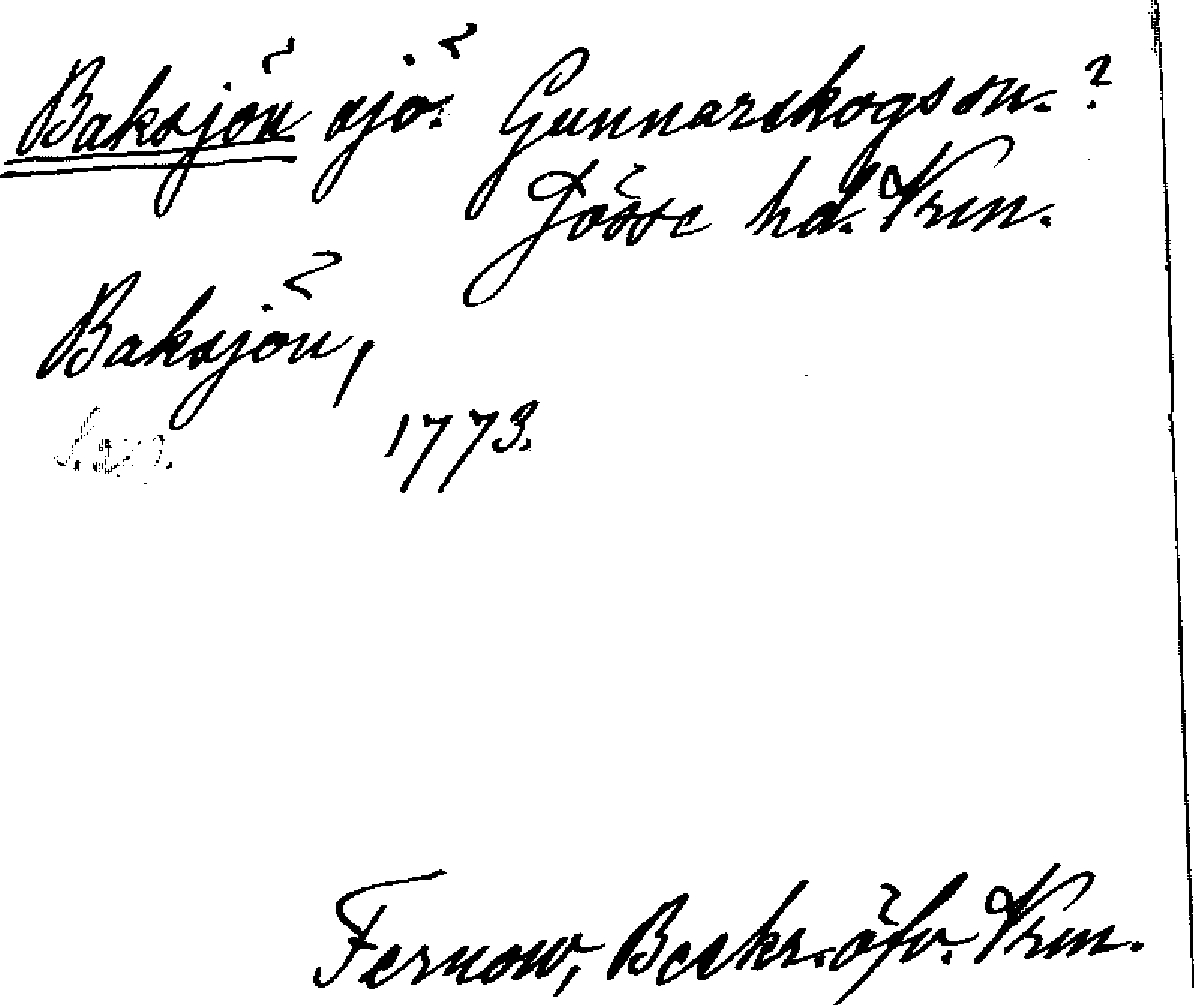 Baksjön sjö. Gunnarskogs sn. ?
Jösse hd. Vrm.
Baksjön,
1773.
Fernow, Beskr. öfv. Vrm.